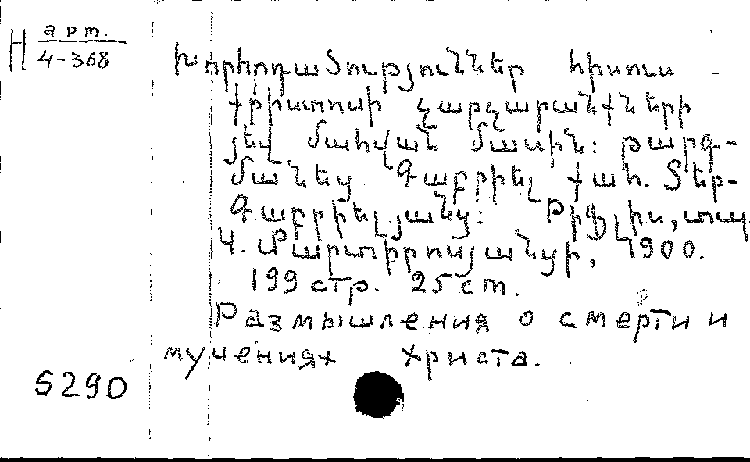 H арт.
4-368
Խորհրդածություններ Հիսուս
Քրիստոսի չարչարանքների
յեվ մահվան մասին: Թարգ-
մանեց Գաբրիել քահ. Տեր-
Գաբրիելյանց: Թիֆլիս, տպ.
Մարտիրոսյանցի, 1900.
199 стр. 25 cm.
Размышления о смерти и
мучениях Христа.
5290